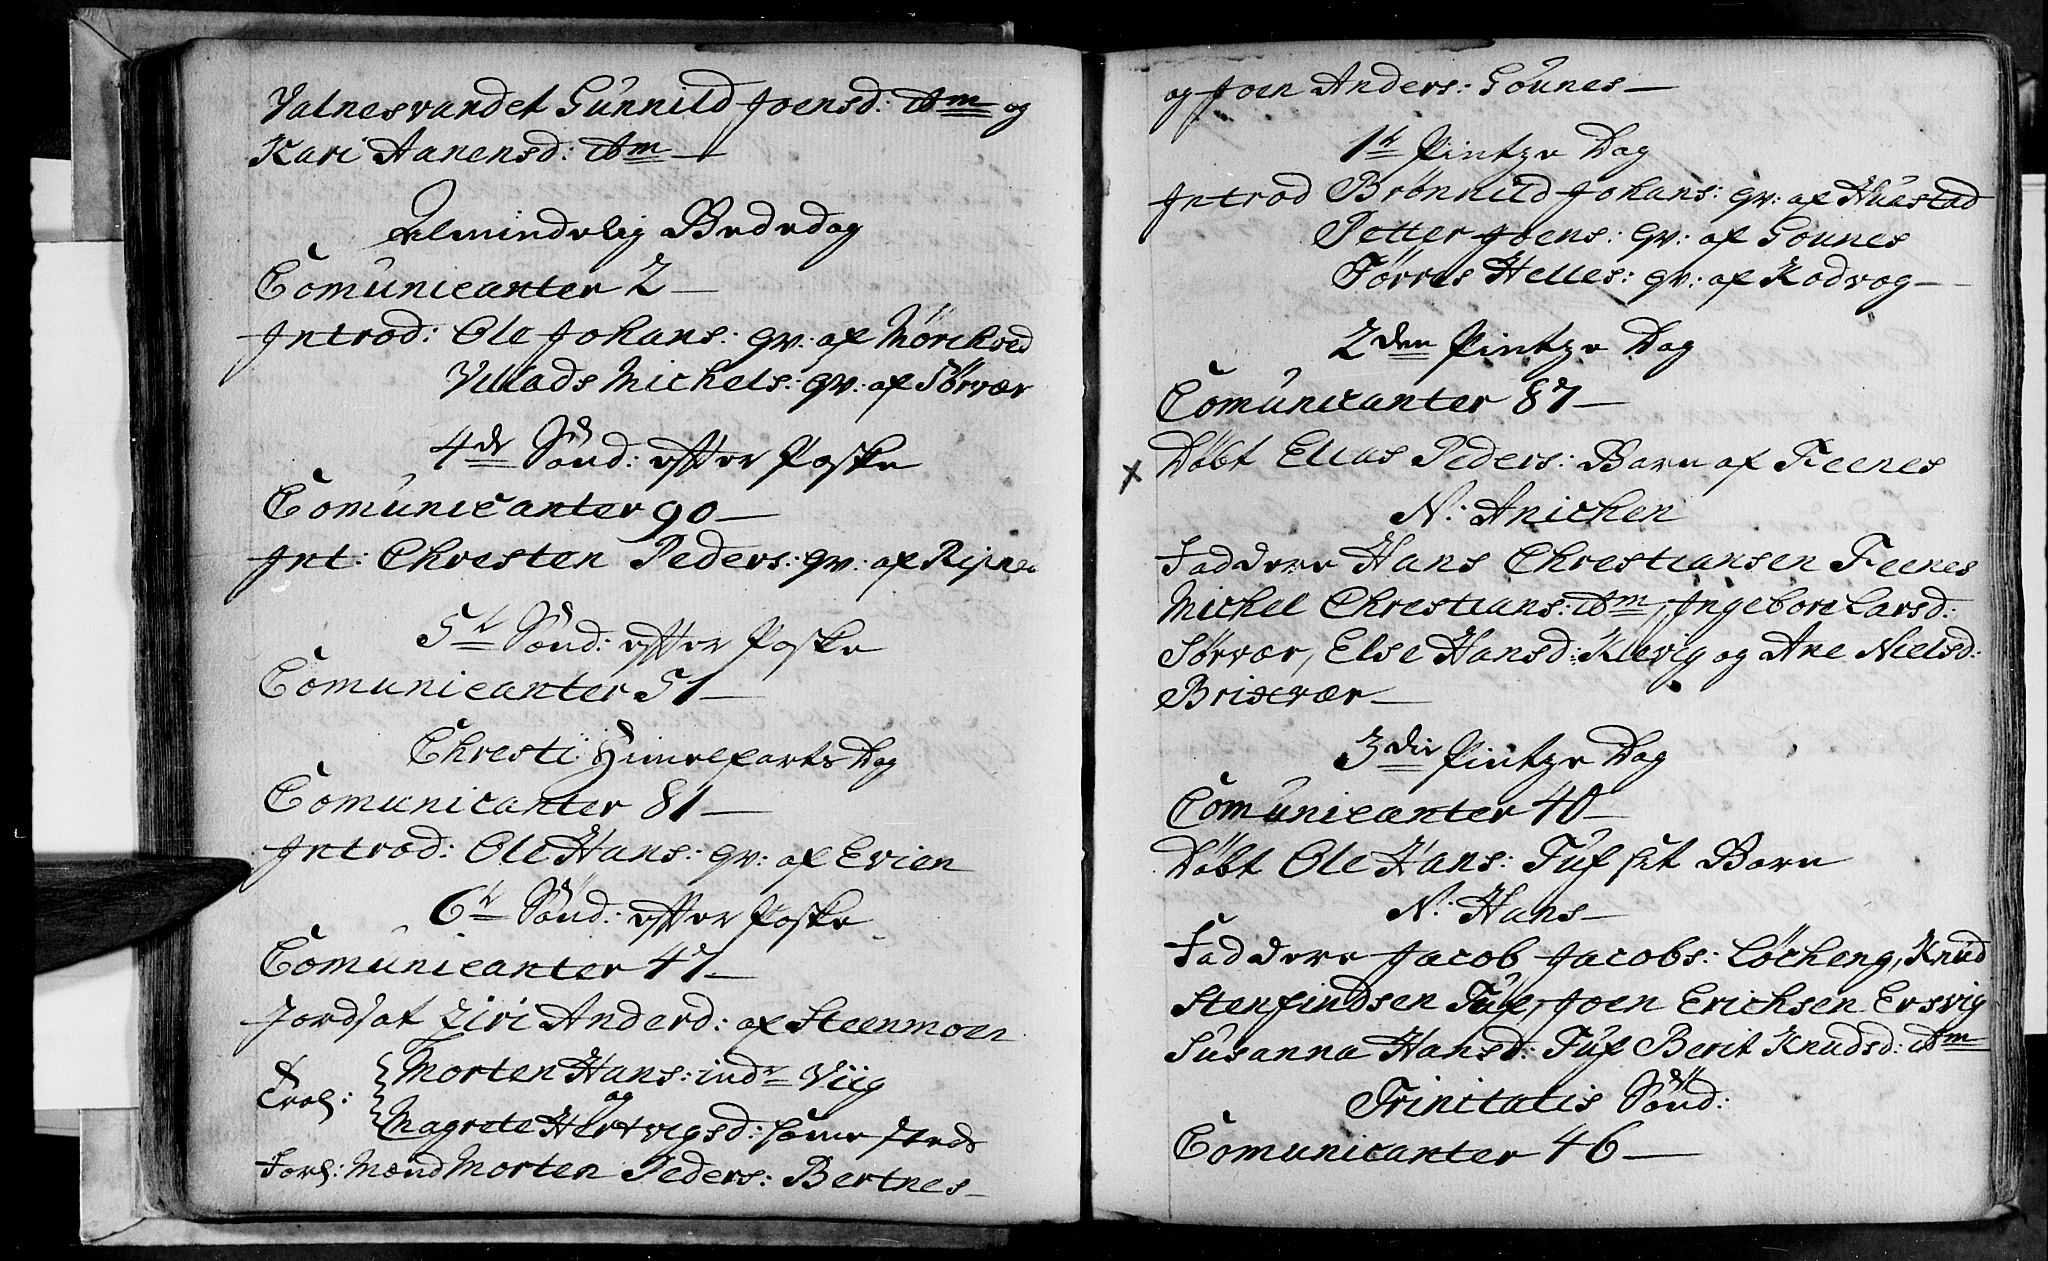 Valnesvandet Gunnild Joensd: ibm og
Kari Hanensd: ibm —
Almindelig Bededag
Comunicanter 2 —
Introd: Ole Johans: qv: af Mørchved
Villads Michels: qv: af Sørvær
4de Sönd: efter Paaske
Comunicanter 90 —
Int: Chresten Peders: qv: af
5te Sönd: efter Paaske
Comunicanter 51 —
Christi Himelfarts Dag
Comunicanter 81 —
Introd: Ole Hans: qv: af Evien
6te Sönd: efter Paaske
Comunicanter 47 —
Jordsat Ziri Anderd: af Steenmoen
Trol: Morten Hans: indr Viig
og
Magrete Hertvigsd: same steds
Forl: Mænd Morten Peders: Bertnes —
og Joen Anders: Göunes —
1te Pintze Dag
Introd Brönnild Johans: qv: af Hustad
Petter Joens: qv: af Gounes
Törres Helles: qv: af Kodvog —
2den Pintze Dag
Comunicanter 87 —
x Döbt Elias Peders: Barn af Feenes
N: Anichen
Faddere Hans Chrestiansen Feenes
Michel Chrestians: ibm, Ingebore Larsd:
Sörvær, Else Hansd: Klevig og Ane Nielsd:
Brixvær —
3die Pintze Dag
Comunicanter 40 —
Döbt Ole Hans: Tuf sit Barn
N: Hans —
Faddere Jacob Jacobs: Löcheng, Knud
Stenfindsen Tuf, Joen Erichsen Ersvig
Susanna Hansd: Tuf Berit Knudsd: ibm
Trinitatis Sönd:
Comunicanter 46 —